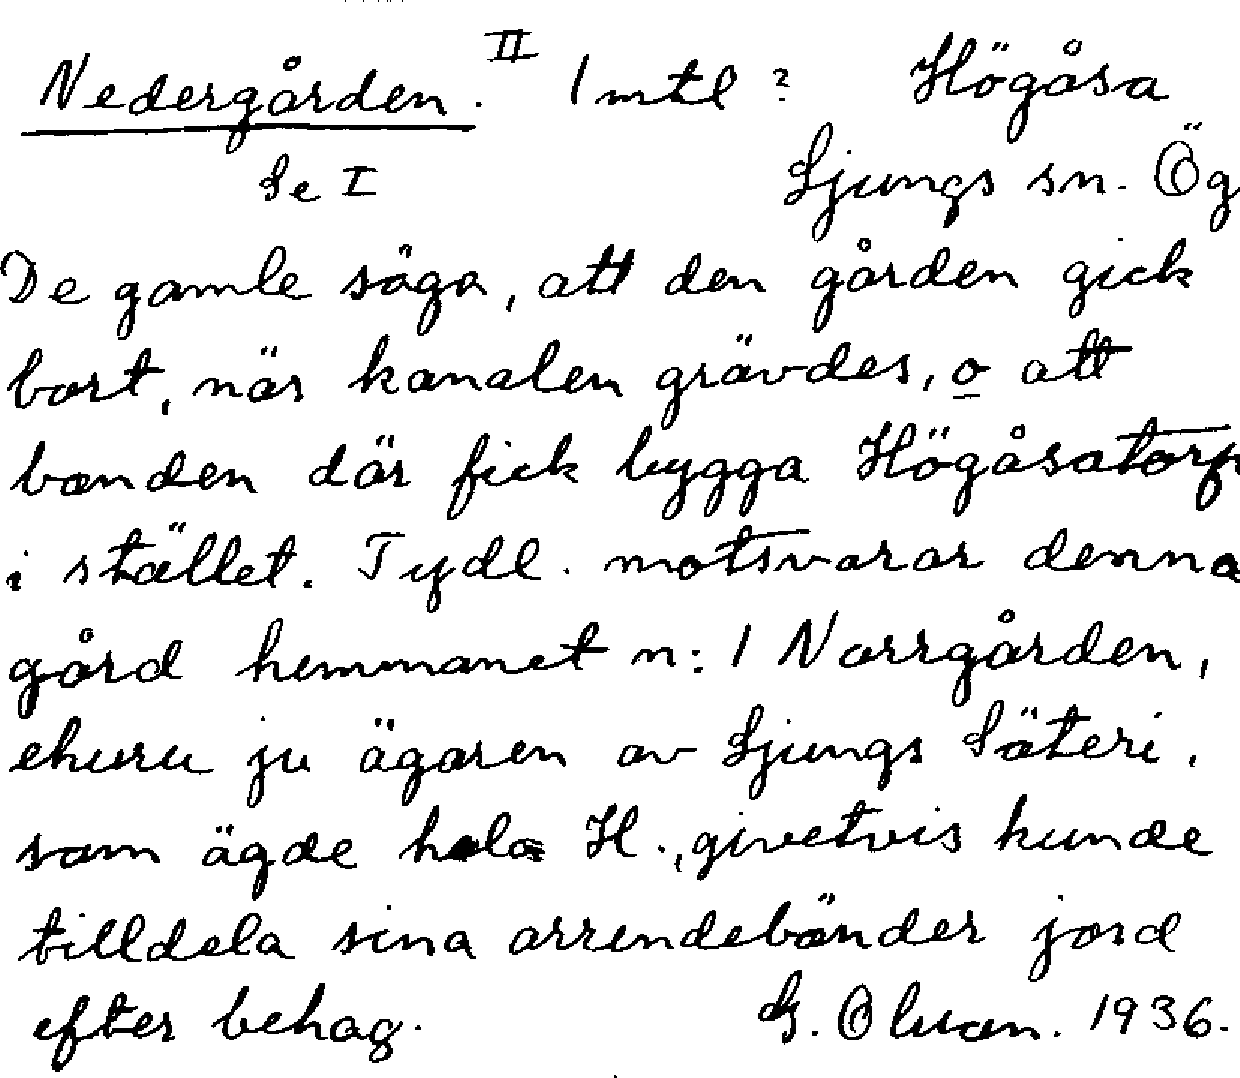 Nedergården. II 1 mtl? Högåsa
Se I Ljungs sn. Ög
De gamle säga, att den gården gick
bort, när kanalen grävdes, o att
bonden där fick bygga Högåsatorp
i stället. Tydl. motsvarar denna
gård hemmanet n:1 Norrgården,
ehuru ju ägaren av Ljungs Säteri,
som ägde hela H., givetvis kunde
tilldela sina arrendebönder jord
efter behag. G. Olson. 1936.